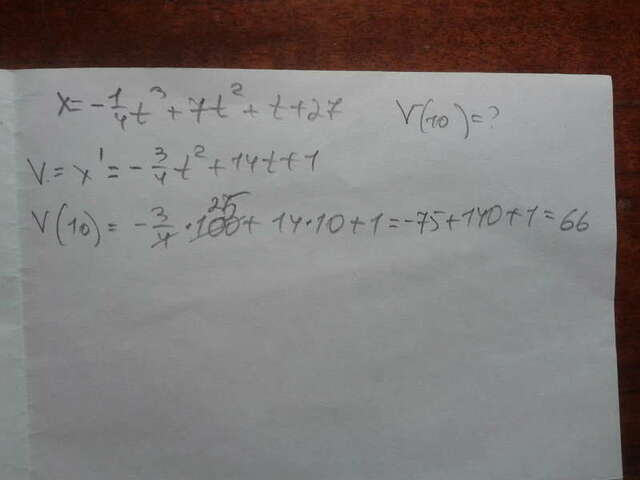 x = -1/4 t³ + 7t² + t + 27 V(10) = ?
V = x' = -3/4 t² + 14t + 1
V(10) = -3/4 · 100 25 + 14·10 + 1 = -75 + 140 + 1 = 66